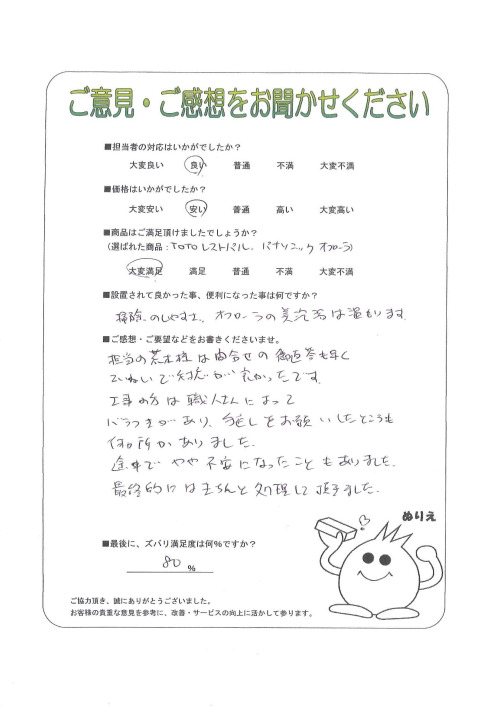 ご意見・ご感想をお聞かせください
■担当者の対応はいかがでしたか？
大変良い 良い 普通 不満 大変不満
■価格はいかがでしたか？
大変安い 安い 普通 高い 大変高い
■商品はご満足頂けましたでしょうか？
(選ばれた商品：TOTOレストパル、パナソニック オフローラ)
大変満足 満足 普通 不満 大変不満
■設置されて良かった事、便利になった事は何ですか？
掃除のしやすさ、オフローラの美泡湯は温もります
■ご感想・ご要望などをお書きくださいませ。
担当の荒木様は問合せの御返答も早く
ていねいで対応が良かったです。
工事の方は職人さんによって
バラつきがあり、手直しをお願いしたところも
何ヶ所かありました。
途中でやや不安になったこともありました。
最終的にはきちんと処理して頂きました。
ぬりえ
■最後に、ズバリ満足度は何％ですか？
80 %
ご協力頂き、誠にありがとうございました。
お客様の貴重な意見を参考に、改善・サービスの向上に活かして参ります。